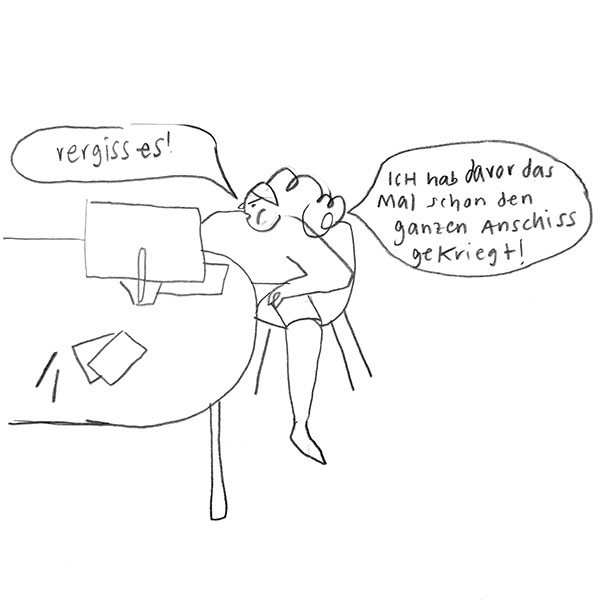 vergiss es!
ICH hab davor das
Mal schon den
ganzen Anschiss
gekriegt!